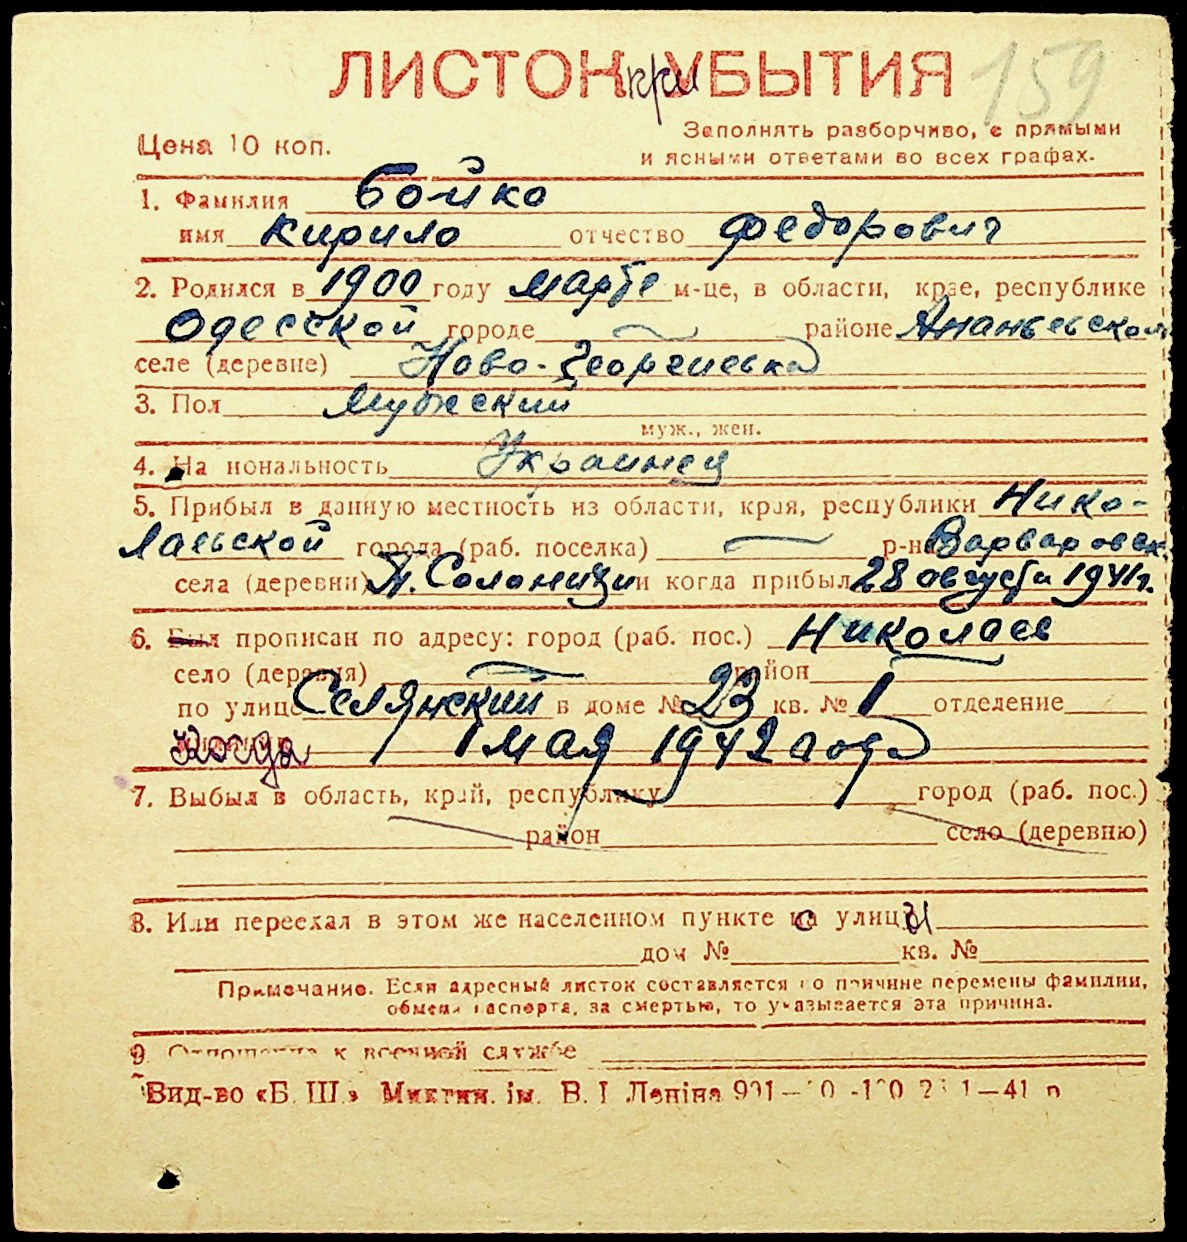 ЛИСТОК при УБЫТИЯ 159
Заполнять разборчиво, с прямыми
Цена 10 коп. и ясными ответами во всех графах.
1. Фамилия Бойко
имя Кирило отчество Федорович
2. Родился в 1900 году марте м-це, в области, крае, республике
Одесской городе районе Ананьевском
селе (деревне) Ново-Георгиевка
3. Пол Мужской
муж., жен.
4. Национальность Украинец
5. Прибыл в данную местность из области, края, республики Нико-
лаевской города (раб. поселка) р-н Варваровск.
села (деревни) П. Солонихи и когда прибыл 28 августа 1941 г.
6. Был прописан по адресу: город (раб. пос.) Николаев
село (деревня) район
по улице Селянский в доме № 23 кв. № 1 отделение
Когда 1 мая 1942 года
7. Выбыл в область, край, республику город (раб. пос.)
район село (деревню)
8. Или переехал в этом же населенном пункте с улицы
дом № кв. №
Примечание. Если адресный листок составляется по причине перемены фамилии,
обмена паспорта, за смертью, то указывается эта причина.
9. Отношение к военной службе
Вид-во «Б. Ш.» Микол. ім. В. І. Леніна